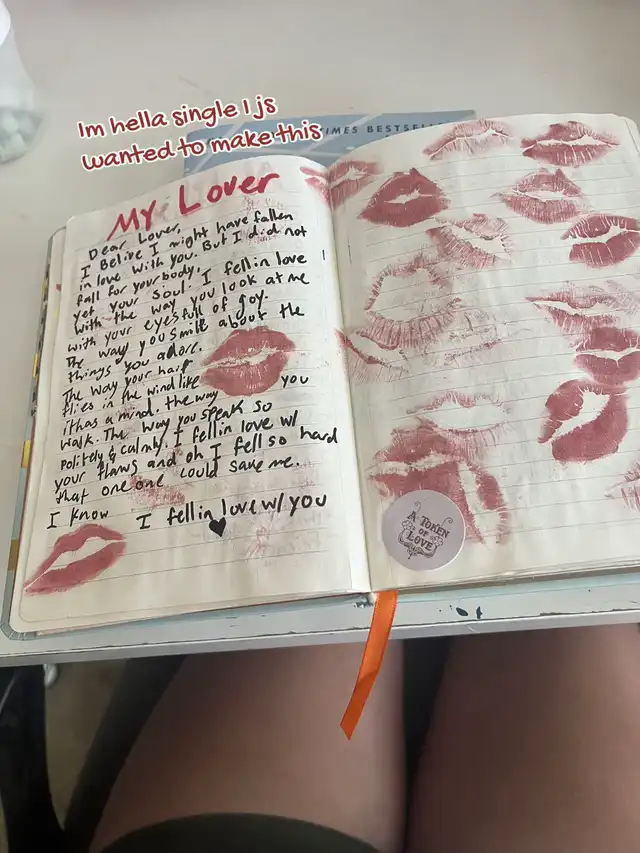 Im hella single I js
wanted to make this
TIMES BESTSELLER
My Lover
Dear Lover,
I Belive I might have fallen
in love with you. But I did not
fall for your body.
Yet your soul. I fell in love
with the way you look at me
with your eyes full of joy.
The way you smile about the
things you adore.
The way your hair
flies in the wind like
it has a mind. the way you
walk. The way you speak so
politely & calmly. I fell in love w/
your flaws and oh I fell so hard
that one one could save me.
I know I fell in love w/ you
A TOKEN
OF
LOVE